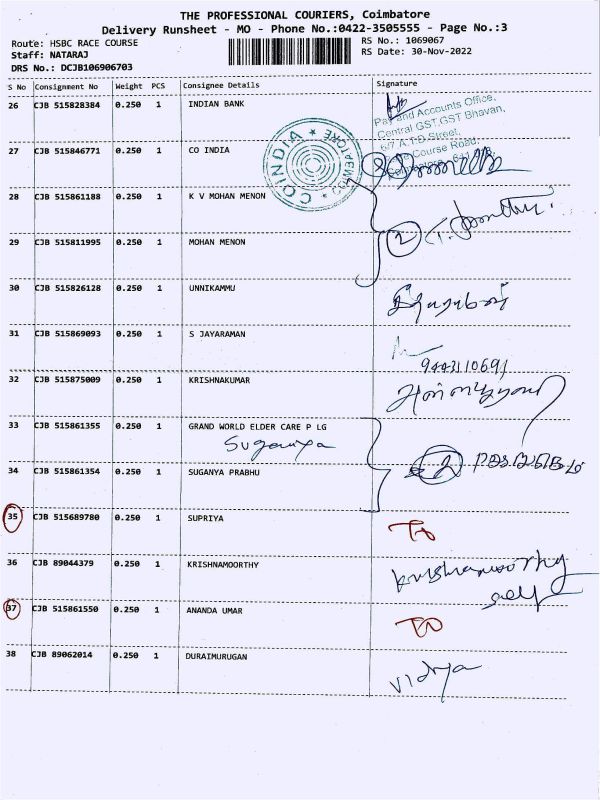 THE PROFESSIONAL COURIERS, Coimbatore
Delivery Runsheet - MO - Phone No.:0422-3505555 - Page No.:3
Route: HSBC RACE COURSE
RS No.: 1069067
Staff: NATARAJ
RS Date: 30-Nov-2022
DRS No.: DCJB106906703
S No Consignment No Weight PCS Consignee Details Signature
26 CJB 515828384 0.250 1 INDIAN BANK
Pay and Accounts Office,
Central GST, GST Bhavan,
6/7 A.T.D Street,
Race Course Road,
Coimbatore - 641
COINDIA
27 CJB 515846771 0.250 1 CO INDIA
28 CJB 515861188 0.250 1 K V MOHAN MENON
29 CJB 515811995 0.250 1 MOHAN MENON
2
30 CJB 515826128 0.250 1 UNNIKAMMU
31 CJB 515869093 0.250 1 S JAYARAMAN
9443110691
32 CJB 515875009 0.250 1 KRISHNAKUMAR
33 CJB 515861355 0.250 1 GRAND WORLD ELDER CARE P LG
Suganya
2
34 CJB 515861354 0.250 1 SUGANYA PRABHU
35 CJB 515689780 0.250 1 SUPRIYA
36 CJB 89044379 0.250 1 KRISHNAMOORTHY
Krishnamoorthy
self
37 CJB 515861550 0.250 1 ANANDA UMAR
38 CJB 89062014 0.250 1 DURAIMURUGAN
Vidya